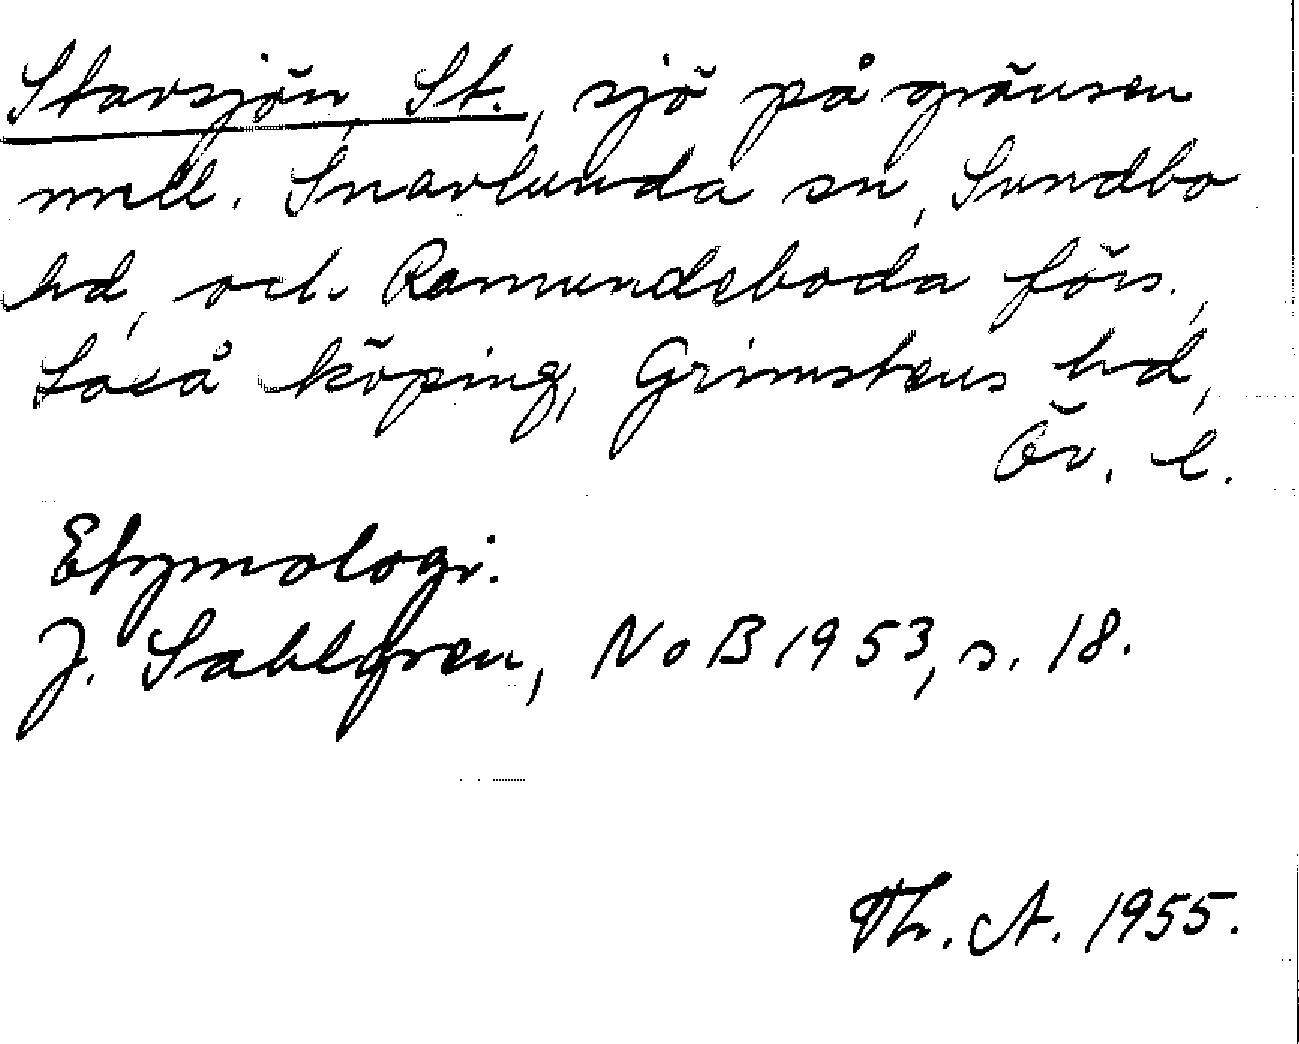 Stavsjön, St., sjö på gränsen
mell. Snavlunda sn, Sundbo
hd, och Ramundeboda förs.,
Laxå köping, Grimstens hd,
Ör. l.
Etymologi.
J. Sahlgren, NoB 1953, s. 18.
Th. A. 1955.